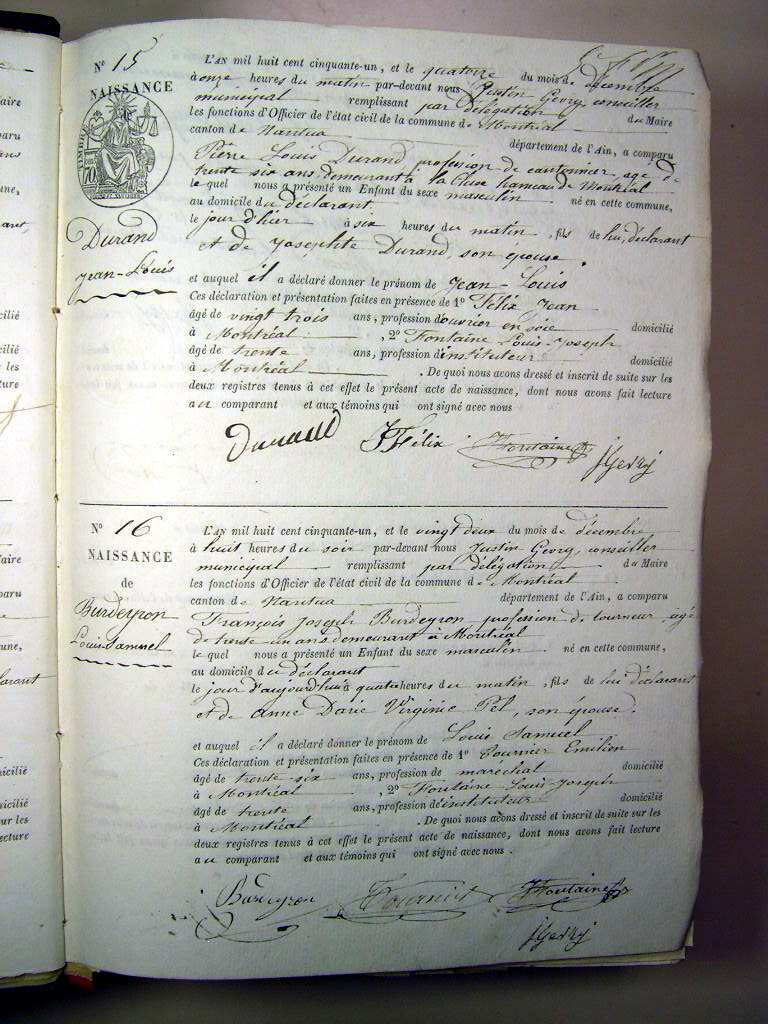 N° 15
NAISSANCE
Durand
Jean-Louis
L'AN mil huit cent cinquante-un, et le quatorze du mois de décembre
à onze heures du matin par-devant nous Justin Gevry, conseiller
municipal remplissant par délégation du Maire
les fonctions d'Officier de l'état civil de la commune de Montréal
canton de Nantua département de l'Ain, a comparu
Pierre Louis Durand, profession de cantonnier, agé de
trente six ans, demeurant à la Cluse hameau de Montréal
le quel nous a présenté un Enfant du sexe masculin né en cette commune,
au domicile du déclarant
le jour d'hier à six heures du matin, fils de lui, déclarant
et de Josephte Durand, son épouse.
et auquel il a déclaré donner le prénom de Jean-Louis
Ces déclaration et présentation faites en présence de 1° Félix Jean
âgé de vingt trois ans, profession d'ouvrier en soie domicilié
à Montréal, 2° Fontaine Louis-Joseph
âgé de trente ans, profession d'instituteur domicilié
à Montréal. De quoi nous avons dressé et inscrit de suite sur les
deux registres tenus à cet effet le présent acte de naissance, dont nous avons fait lecture
au comparant et aux témoins qui ont signé avec nous
Durand J Félix Fontaine J Gevry
N° 16
NAISSANCE
de
Burdeyron
Louis Samuel
L'AN mil huit cent cinquante-un, et le vingt deux du mois de décembre
à huit heures du soir par-devant nous Justin Gevry, conseiller
municipal remplissant par délégation du Maire
les fonctions d'Officier de l'état civil de la commune de Montréal
canton de Nantua département de l'Ain, a comparu
François Joseph Burdeyron, profession de tourneur, agé
de trente un ans demeurant à Montréal
le quel nous a présenté un Enfant du sexe masculin né en cette commune,
au domicile du déclarant
le jour d'aujourd'hui à quatre heures du matin, fils de lui déclarant
et de Anne Darie Virginie Pel, son épouse.
et auquel il a déclaré donner le prénom de Louis Samuel
Ces déclaration et présentation faites en présence de 1° Tournier Emilien
âgé de trente six ans, profession de marechal domicilié
à Montréal, 2° Fontaine Louis-Joseph
âgé de trente ans, profession d'instituteur domicilié
à Montréal. De quoi nous avons dressé et inscrit de suite sur les
deux registres tenus à cet effet le présent acte de naissance, dont nous avons fait lecture
au comparant et aux témoins qui ont signé avec nous.
Burdeyron Tournier Fontaine
J Gevry